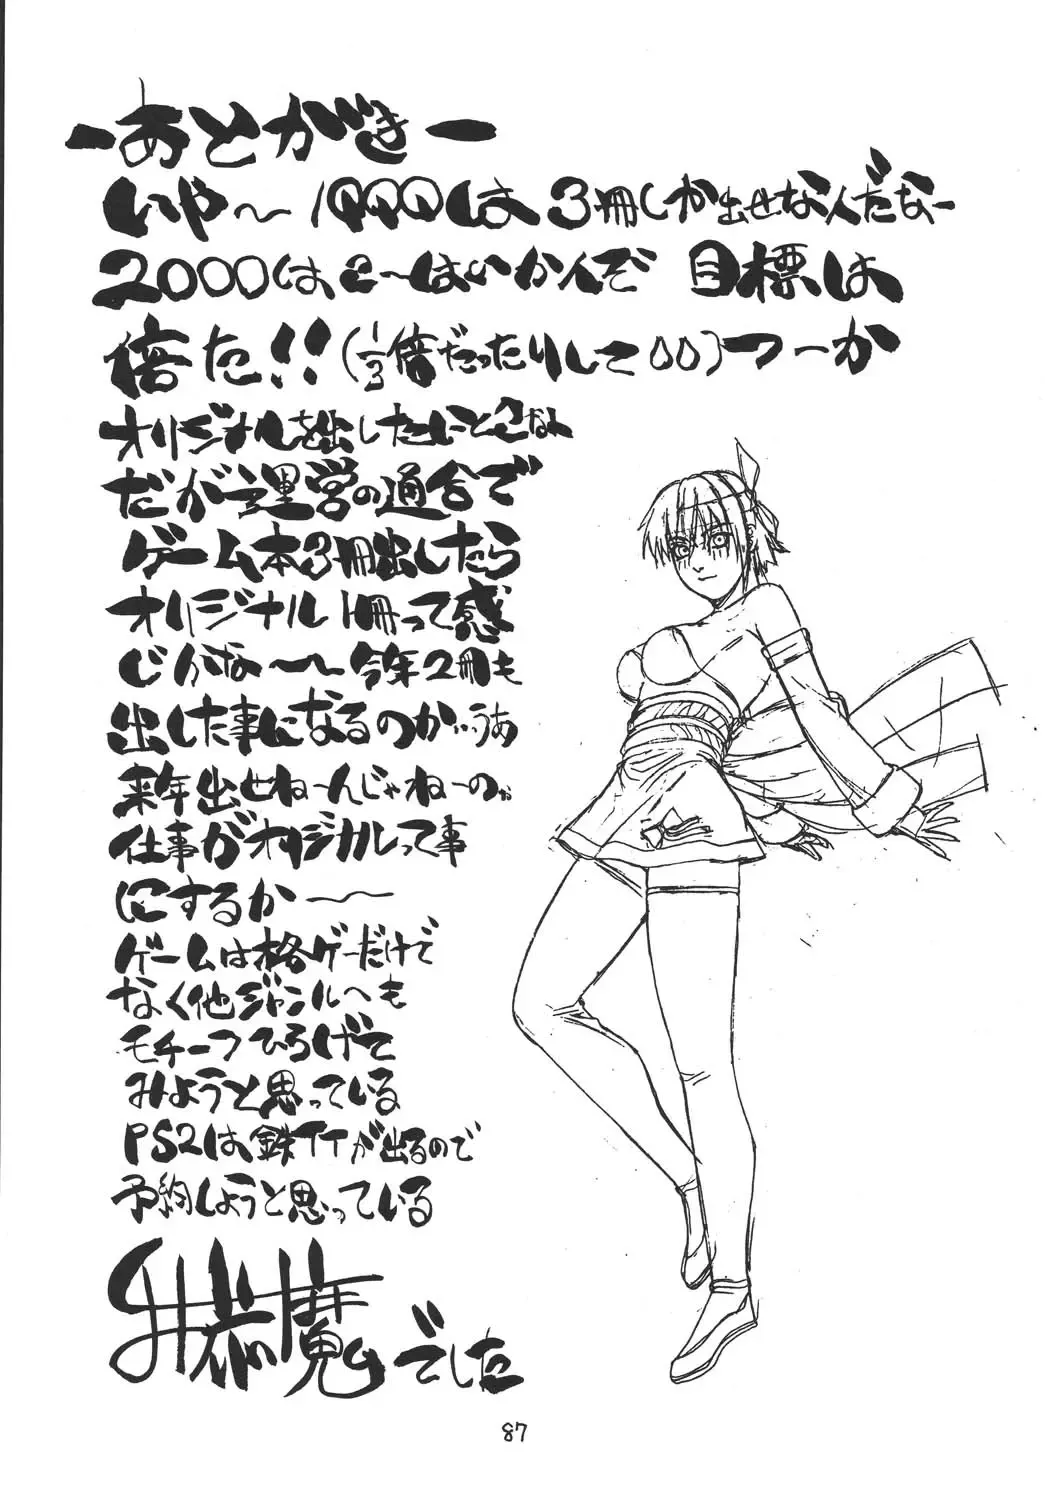 ーあとがきー
いや〜1999は3冊しか出せなんだなー
2000はこ〜はいかんぞ 目標は
倍だ!!(1/3倍だったりして00)つーか
オリジナルを出したいとこなん
だが運営の都合で
ゲーム本3冊出したら
オリジナル1冊って感
じかな〜〜今年2冊も
出した事になるのか…うあ
来年出せねーんじゃねーのか
仕事がオリジナルって事
にするか〜〜
ゲームは格ゲーだけで
なく他ジャンルへも
モチーフひろげて
みようと思っている
PS2は鉄TTが出るので
予約しようと思っている
魔のでした
87